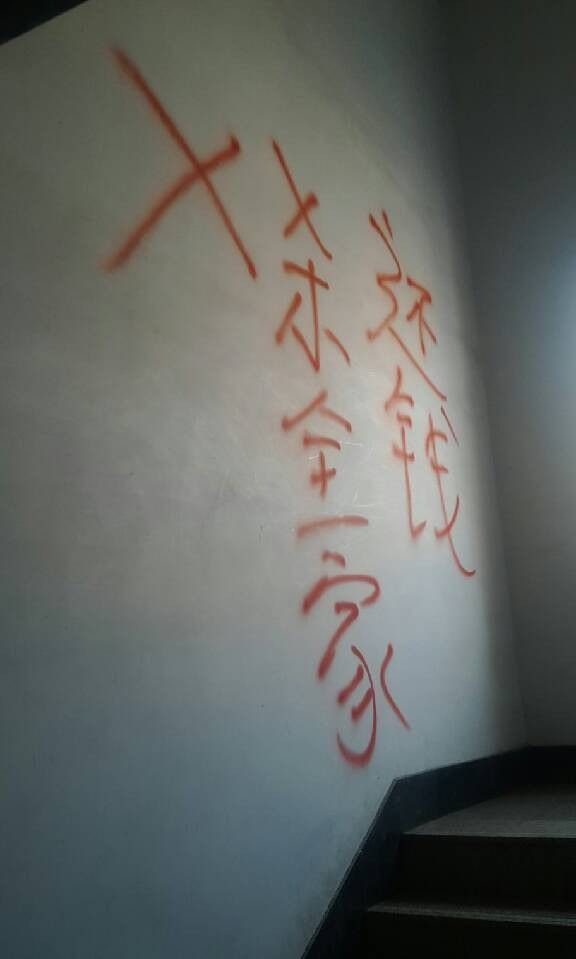 还钱
杀全家